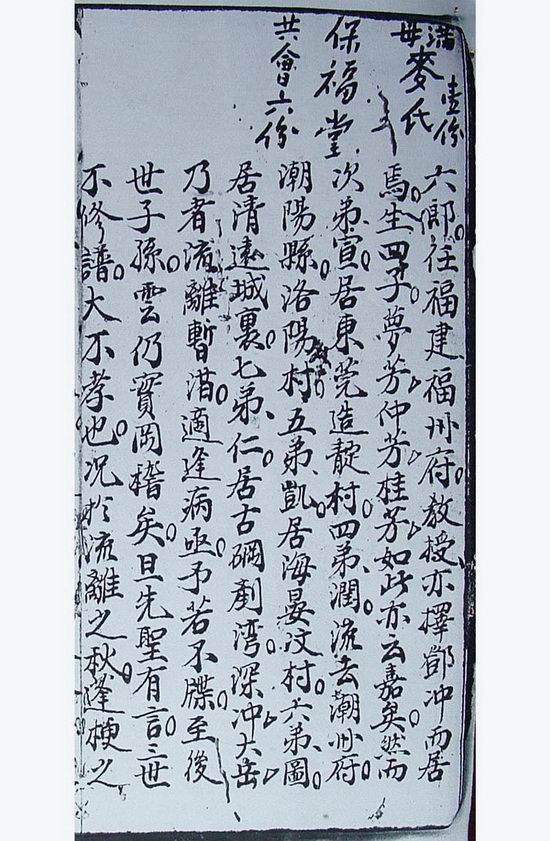 滿 壹份
母麥氏
保福堂
共會六份
六郎。任福建福州府。教授亦擇鄧冲而居
焉。生四子夢芳仲芳桂芳如此亦云嘉矣。然而
次弟宣。居東莞造靛村四弟潤。流去潮州府。
潮陽縣。洛陽村五弟凱。居海晏汶村。六弟圖
居清遠城裏。七弟仁。居古磵劃湾。深冲大岳
乃者。流離暫湛。適逢病亟。予若不牒。至後
世子孫。雲仍實罔稽矣。且先聖有言。三世
不修譜。大不孝也。况於流離之秋。逢梗之